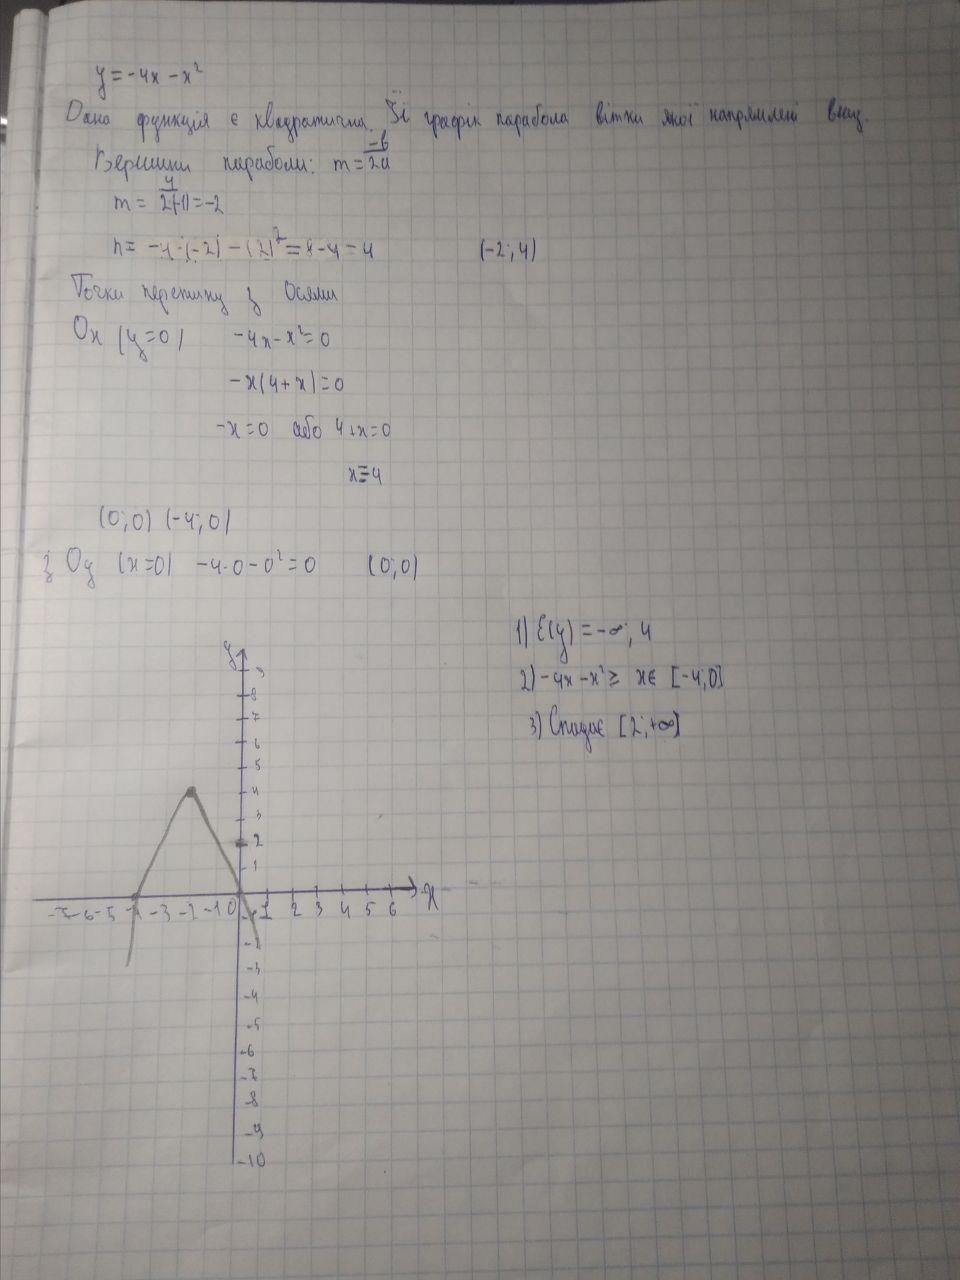 y = -4x - x²
Дана функція є квадратична. Її графік парабола вітки якої напрямлені вниз.
Вершини параболи: m = -b/2a
m = 4/2(-1) = -2
n = -4·(-2) - (2)² = 8 - 4 = 4 (-2; 4)
Точки перетину з Осями
Ox (y=0) -4x - x² = 0
-x(4+x) = 0
-x = 0 або 4+x=0
x = 4
(0; 0) (-4; 0)
з Oy (x=0) -4·0 - 0² = 0 (0; 0)
1) E(y) = -∞; 4
2) -4x - x² ≥ x∈ [-4; 0]
3) Спадає [2; +∞]
y
9
8
7
6
5
4
3
2
1
-7 -6 -5 -4 -3 -2 -1 0 1 2 3 4 5 6 x
-1
-2
-3
-4
-5
-6
-7
-8
-9
-10